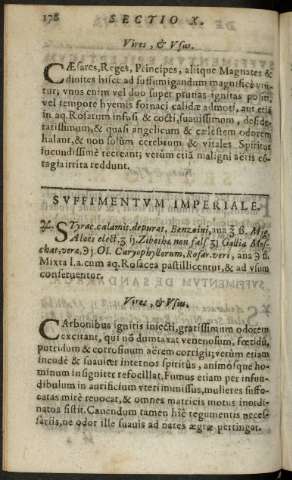 178 SECTIO X.
Vires, & Vsus.
CÆsares, Reges, Principes, aliique Magnates &
diuites hisce ad suffumigandum magnificè vtũ-
tur, vnus enim vel duo super prunas ignitas positi,
vel tempore hyemis fornaci calidæ admoti, aut etiã
in aq. Rosarum infusi & cocti, suauissimum, deside-
ratissimum, & quasi angelicum & cælestem odorem
halant, & non solùm cerebrum & vitales Spiritus
iucundissimè recreant, verùm etiã maligni aëris cõ-
tagia irrita reddunt.
SVFFIMENTVM IMPERIALE.
℞. STyrac. calamit. depurat. Benzoini, ana ʒ 6. Lig.
Aloës elect. ʒ ij. Zibethæ non fals ʒj Gallia Mos-
chat. veræ, ℈ j. Ol. Caryophyllorum, Rosar. veri, ana ℈ 6.
Mixta l.a. cum aq. Rosacea pastillicentur, & ad vsum
conseruentur.
Vires, & Vsus.
CArbonibus ignitis iniecti, gratissimum odorem
excitant, qui nõ dumtaxat venenosum, fœtidũ,
putridum & corrosiuum aërem corrigit, verùm etiam
iucundè & suauiter internos spiritus, animosque ho-
minum insigniter refocillat. Fumus etiam per infun-
dibulum in aurificium vteri immissus, mulieres suffo-
catas mirè reuocat, & omnes matricis motus inordi-
natos sistit. Cauendum tamen hîc tegumentis neces-
sariis, ne odor ille suauis ad nares ægræ pertingat.